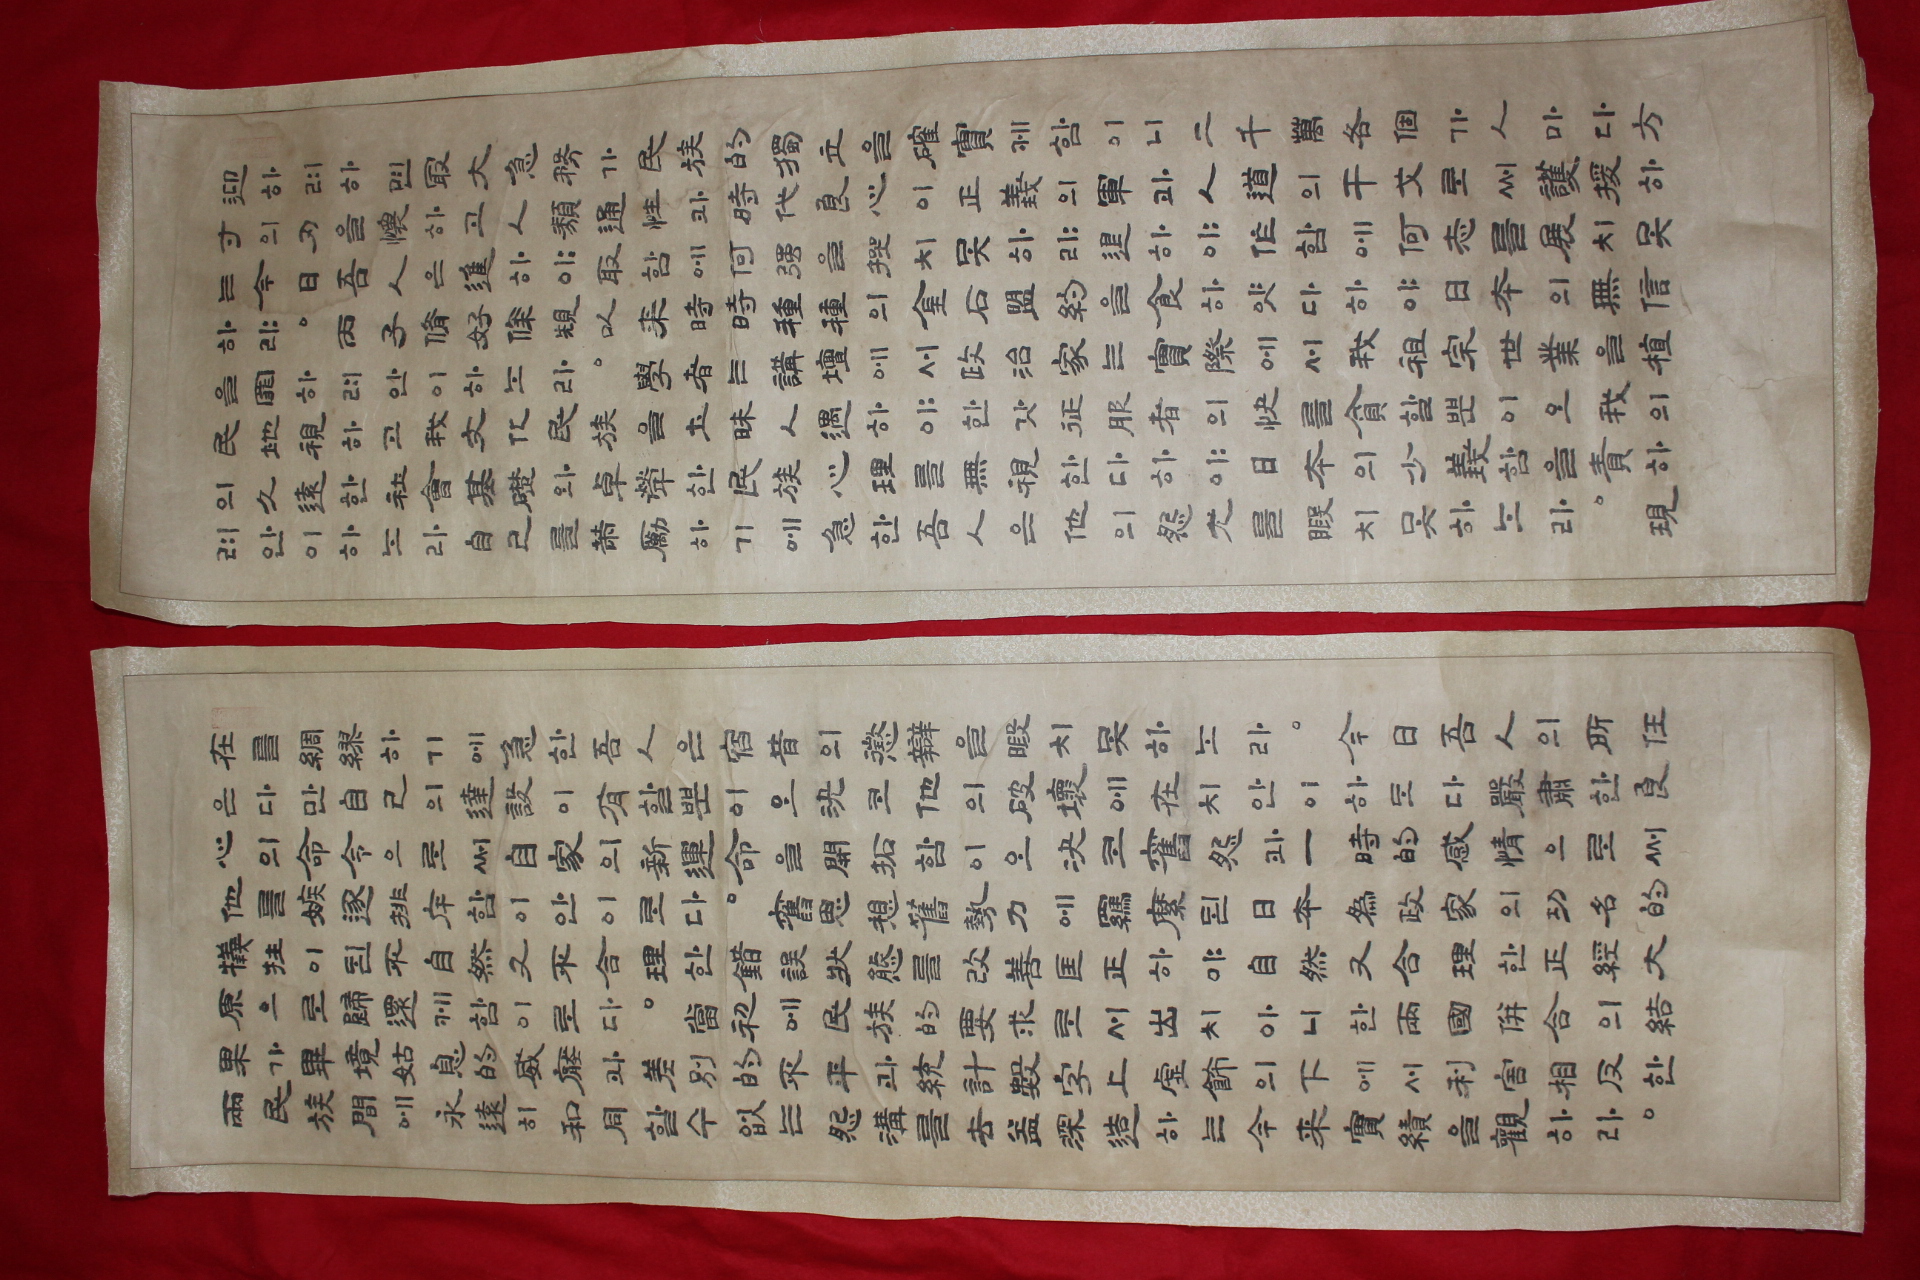 迎하려하면最大急務가民族的獨立을確實케함이니二千萬各個가人마다方
寸의刃을懷하고人類通性과時代良心이正義의軍과人道의干戈로써護援하
는今日吾人은進하야取함에何强을挫치못하랴退하야作함에何志를展치못
하랴。丙子修好條規以來時時種種의金石盟約을食하얏다하야日本의無信
을罪하려안이하노라。學者는講壇에서政治家는實際에서我祖宗世業을植
民地視하고我文化民族을土昧人遇하야한갓征服者의快를貪할뿐이오我의
의久遠한社會基礎와卓犖한民族心理를無視한다하야日本의少義함을責하
려안이하노라自己를策勵하기에急한吾人은他의怨尤를暇치못하노라。現
在를綢繆하기에急한吾人은宿昔의懲辯을暇치못하노라。今日吾人의所任
은다만自己의達設이有할뿐이오決코他의破壞에在치안이하도다嚴肅한良
心의命令으로써自家의新運命을開拓함이오決코舊怨과一時的感情으로써
他를嫉逐排斥함이안이로다。舊思想舊勢力에羈縻된日本為政家의功名的
犧牲이된不自然又不合理한錯誤狀態를改善匡正하야自然又合理한正經大
原으로歸還케함이로다。當初에民族的要求로서出치아니한兩國倂合의結
果가畢境姑息的威壓과差別的不平과統計數字上虛飾의下에서利害相反한
兩民族間에永遠히和同할수없는怨溝를去益深造하는今來實績을觀하라。